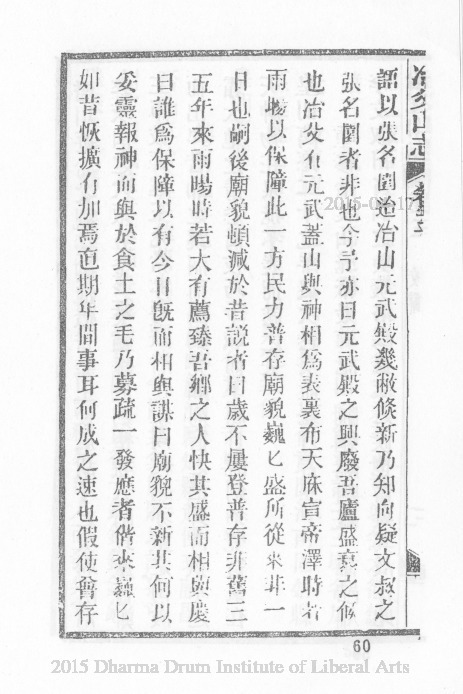 冶父山志
語以張名園治冶山元武殿幾敝倐新乃知向疑文叔之
張名園者非也今予亦曰元武殿之興廢吾廬盛衰之候
也冶父有元武蓋山與神相為表裏布天庥宣帝澤時若
雨暘以保障此一方民力普存廟貌巍匕盛所從來非一
日也嗣後廟貌頓減於昔説者曰歲不屢登普存非舊三
五年來雨暘時若大有薦臻吾鄉之人快其盛而相與慶
曰誰爲保障以有今日旣而相與謀曰廟貌不新其何以
妥靈報神而與於食土之毛乃募疏一發應者偕來巍匕
如昔恢擴有加焉直期年間事耳何成之速也假使曾存
60
2015 Dharma Drum Institute of Liberal Arts